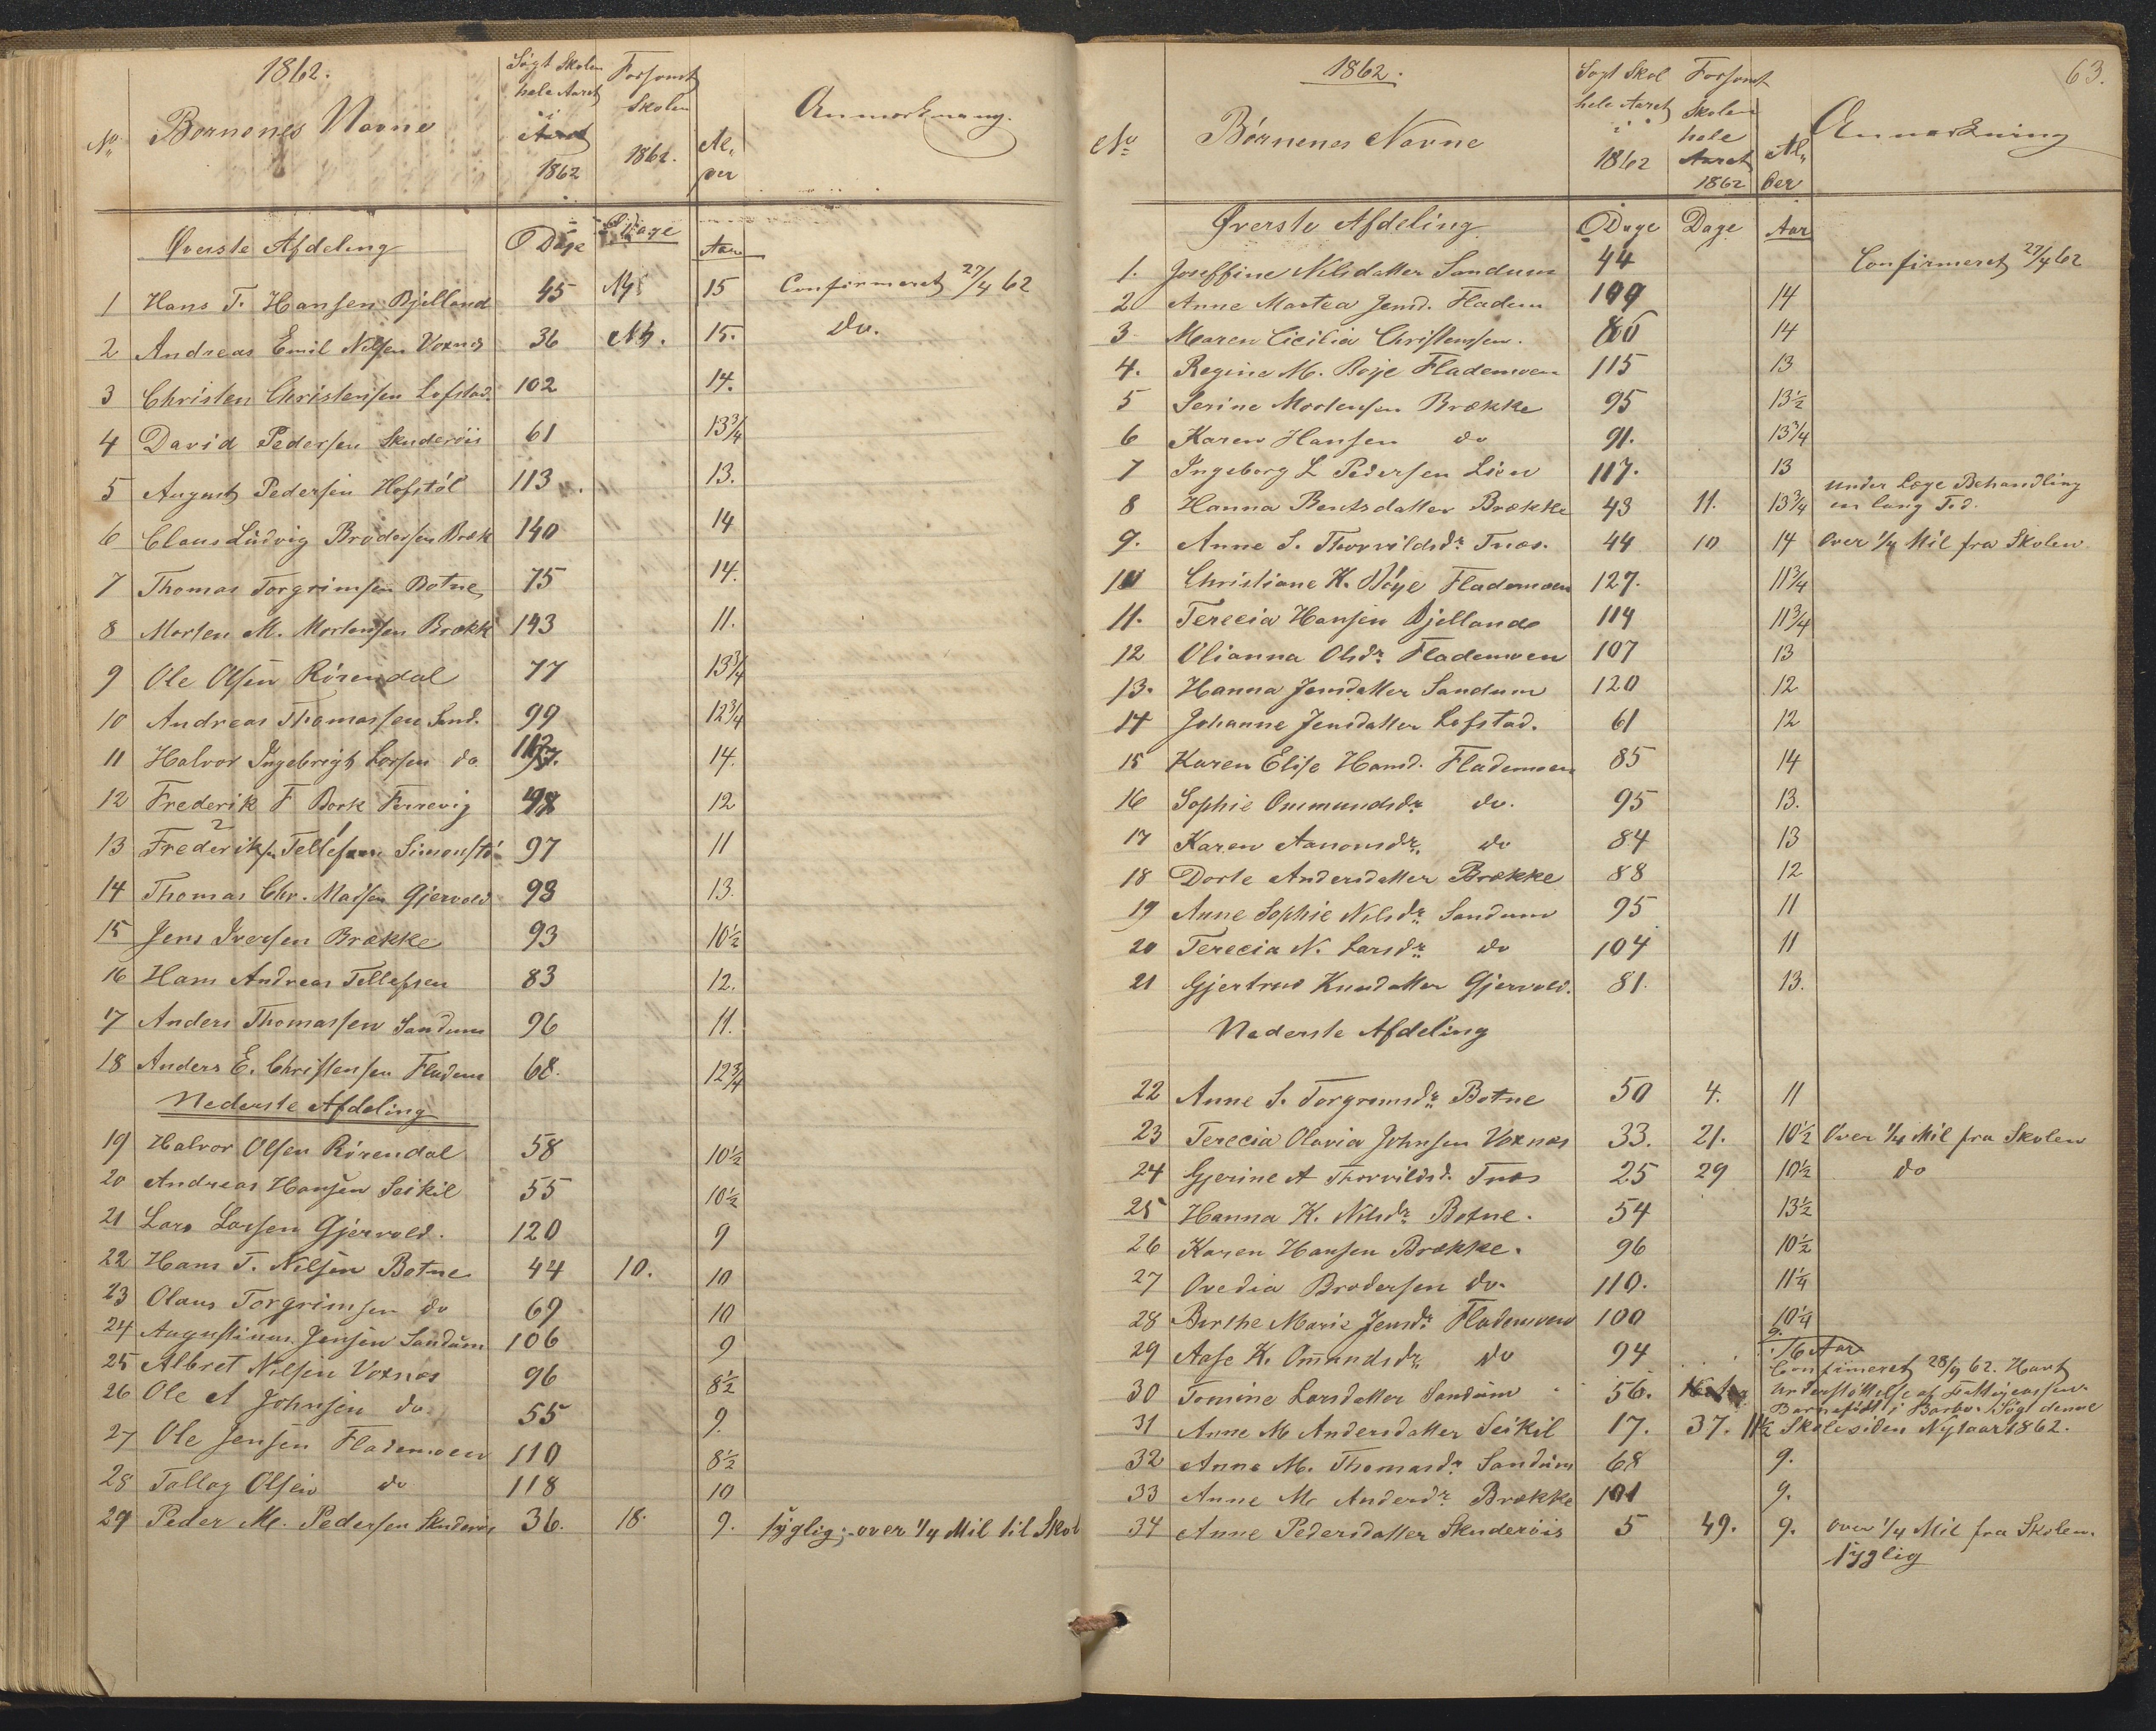 1862.
No Børnenes Navne Søgt Skolen hele Aaret i Aaret 1862 Forsømt Skolen 1862. Al, der Anmærkning.
Øverste Afdeling Dage Dage Aar
1 Hans T. Hansen Bjelland 45 15 Confirmeret 27/4 62
2 Andreas Emil Nilsen Voxnæs 36 15. Do.
3 Christen Christensen Lofstad. 102 14.
4 David Pedersen Skuderöis 61 13 3/4
5 August Pedersen Hofstöl 113 13.
6 Claus Ludvig Brodersen Bræk 140 14
7 Thomas Torgrimsen Botne 75 14.
8 Morten M. Mortensen Brækk 143 11.
9 Ole Olsen Rörendal 77 13 3/4
10 Andreas Thomassen Sand. 99 12 3/4
11 Halvor Ingebrigt Larsen do 14.
12 Frederik F Bork Ferrevig 98 12
13 Frederiks. Tellefsen 97 11
14 Thomas Chr. Madsen Gjervold 93 13.
15 Jens Iversen Brække 93 10 1/2
16 Hans Andreas Tellefsen 83 12.
17 Anders Thomassen Sandum 96 11.
18 Anders E. Christensen Fladem 68. 12 3/4
Nederste Afdeling
19 Halvor Olsen Rörendal 58 10 1/2
20 Andreas Hansen Seikil 55 10 1/2
21 Lars Larsen Gjervold. 120 9
22 Hans T. Nilsen Botne 44 10. 10
23 Olaus Torgrimsen do 69 10
24 Augustinus Jensen Sandum 106 9
25 Albret Nilsen Voxnæs 96 8 1/2
26 Ole A Johnsen do. 55 9.
27 Ole Jensen Flademoen 110 8 1/2
28 Tallag Olsen do 118 10
29 Peder M. Pedersen Skuderöis 36. 18. 9. sÿglig; over 1/4 Mil til Skol
63.
1862.
No Børnenes Navne Søgt Skol hele Aaret i 1862 Forsømt Skolen hele Aaret 1862 Al, der Anmærkning
Øverste Afdeling Dage Dage Aar
1. Joseffine Nilsdatter Sandum 44 Confirmeret 27/4 62
2 Anne Martea Jensd. Fladem 109 14
3 Maren Cicilia Christensen. 80 14
4. Regine M. Boje Flademoen 115 13
5 Serine Mortensen Brække 95 13 1/2
6 Karen Hansen do 91. 13 3/4
7 Ingeborg L Pedersen Lien 117. 13
8 Hanna Bentsdatter Brække 43 11. 13 3/4 under Læge Behandling en lang Tid.
9. Anne S. Thorvildsdr. Tnæs. 44 10 14 Over 1/4 Mil fra Skolen
10 Christiane K. Böye Flademoen 127. 11 3/4
11. Terecia Hansen Bjelland 114 11 3/4
12 Olianna Olsdr. Flademoen 107 13
13. Hanna Jensdatter Sandum 120 12
14 Johanne Jensdatter Lofstad. 61 12
15 Karen Elise Hansd. Flademoen 85 14
16 Sophie Ommundsdr. do. 95 13.
17 Karen Aanonsdr. do 84 13
18 Dorte Andersdatter Brække 88 12
19 Anne Sophie Nilsdr. Sandum 95 11
20 Terecia N. Larsdr. do 104 11
21 Gjertrud Knudatter Gjervold. 81. 13.
Nederste Afdeling
22 Anne S. Torgrimsdr. Botne 50 4. 11
23 Terecia Olavia Johnsen Voxnæs 33. 21. 10 1/2 Over 1/4 Mil fra Skolen
24 Gjerine A Thorvildsd. Tnæs 25 29 10 1/2 do
25 Hanna K. Nilsdr. Botne. 54 13 1/2
26 Karen Hansen Brække. 96 10 1/2
27 Ovedia Brodersen do. 110. 11 1/4
28 Berthe Marie Jensdr. Flademoen 100 10 1/4
29 Aase K. Om̄undsdr. do 94 9.
16 Aar
Confirmeret 28/9 62. Havt
30 Tomine Larsdatter Sandum 56. Understöttelse af Fattigcassen.
Barnefödt i Barbo. Sögt denne
31 Anne M Andersdatter Seikil 17. 37. 11 1/2 Skole siden Nytaar 1862.
32 Anne M. Thomasdr. Sandum 68 9.
33 Anne M Andersdr. Brække 101 9.
34 Anne Pedersdatter Skuderöis 5 49. 9. over 1/4 Mil fra Skolen.
sÿglig